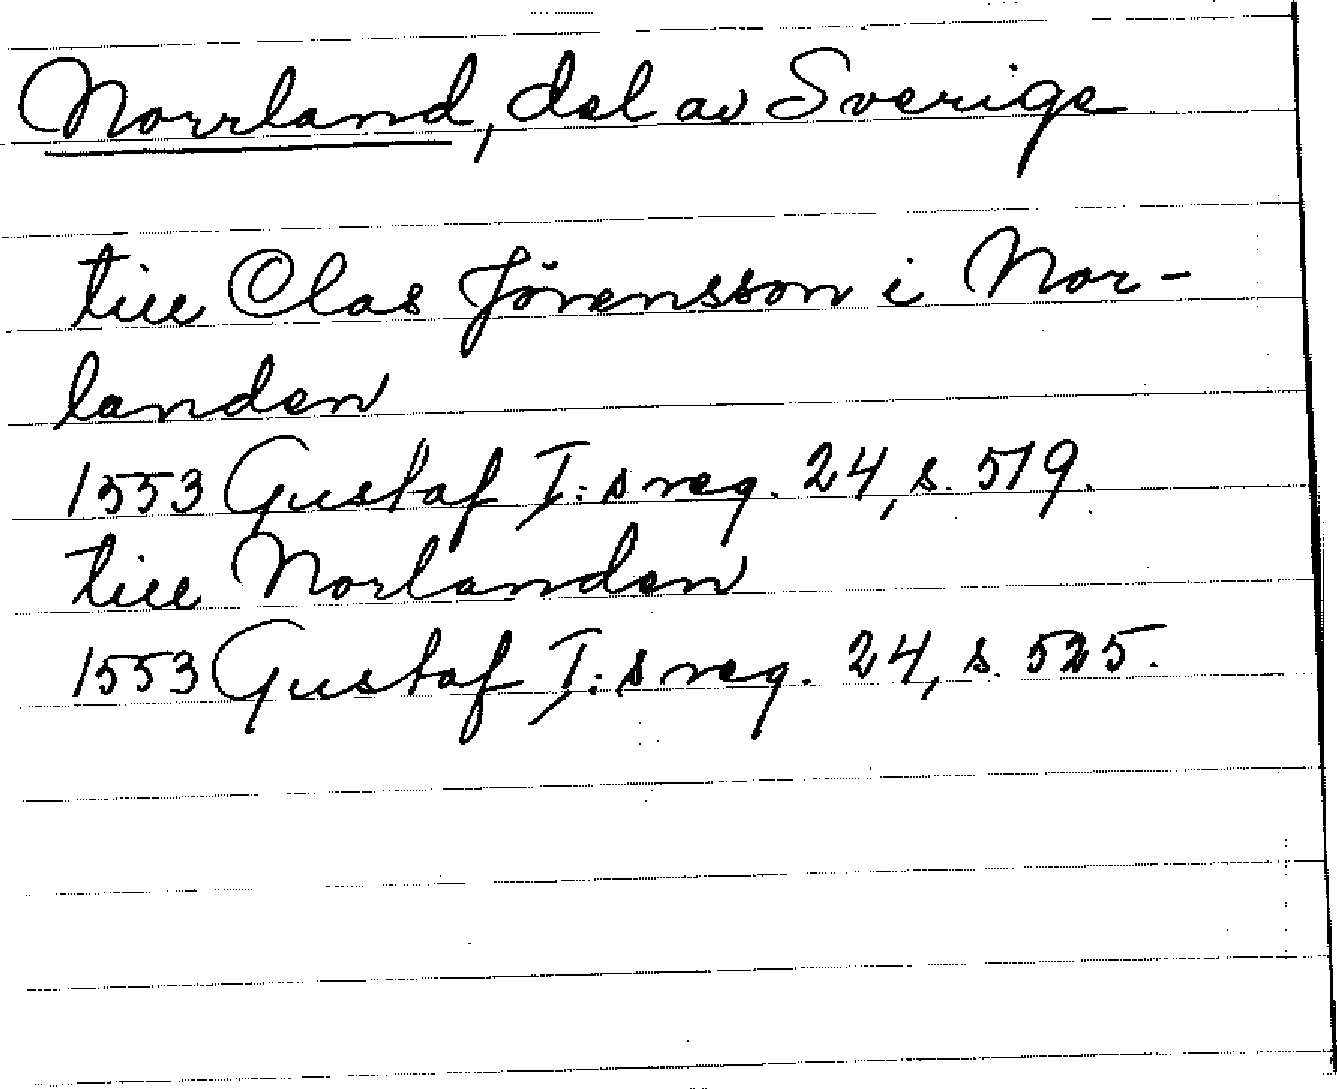 Norrland, del av Sverige
till Clas Jörensson i Nor-
landen
1553 Gustaf I:s reg. 24, s. 519.
till Norlanden
1553 Gustaf I:s reg. 24, s. 525.